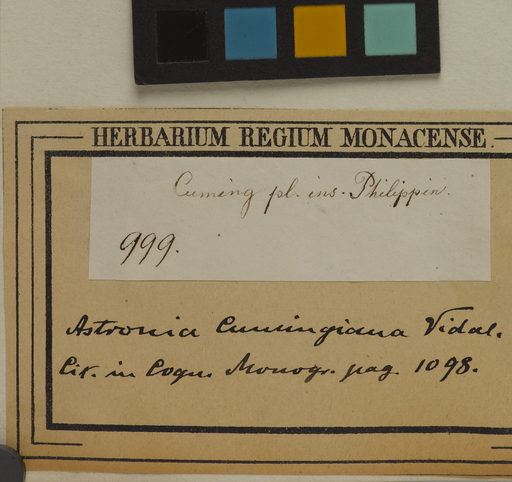 HERBARIUM REGIUM MONACENSE.
Cuming pl. ins. Philippin.
999.
Astronia Cumingiana Vidal.
Cit. in Cogn. Monogr. pag. 1098.